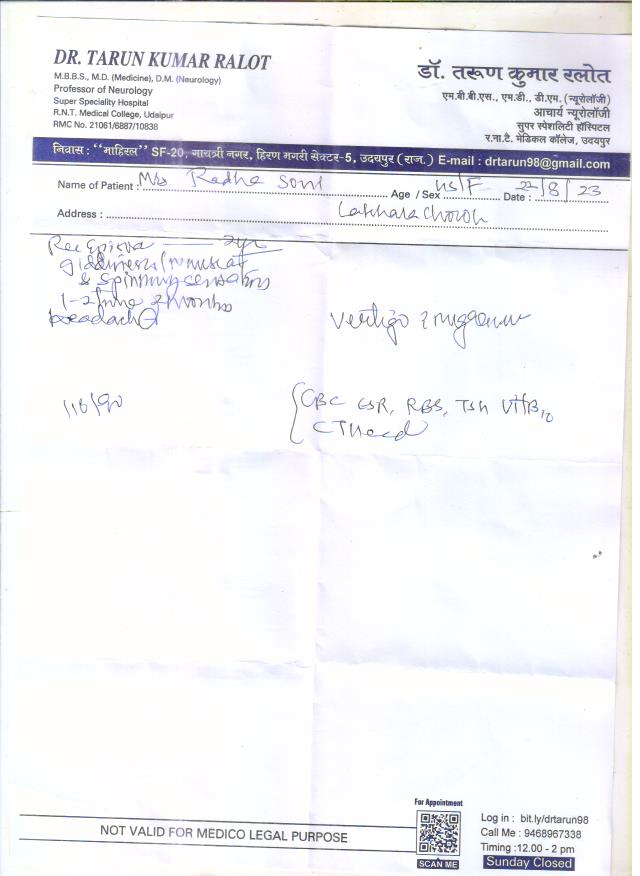 DR. TARUN KUMAR RALOT
M.B.B.S., M.D. (Medicine), D.M. (Neurology)
Professor of Neurology
Super Speciality Hospital
R.N.T. Medical College, Udaipur
RMC No. 21061/6887/10838
डॉ. तरूण कुमार रलोत
एम.बी.बी.एस., एम.डी., डी.एम. (न्यूरोलॉजी)
आचार्य न्यूरोलॉजी
सुपर स्पेशलिटी हॉस्पिटल
र.ना.टै. मेडिकल कॉलेज, उदयपुर
निवास : "माहिरल" SF-20, गायत्री नगर, हिरण मगरी सेक्टर-5, उदयपुर (राज.) E-mail : drtarun98@gmail.com
Name of Patient : Mrs Radha Soni Age / Sex /F Date : 22/8/23
Address :
giddiness
& spinning sensations
1-2 / 2 months
headache
Vertigo
110/90
CBC ESR, RBS, TSH VitB12
CT Head
NOT VALID FOR MEDICO LEGAL PURPOSE
For Appointment
SCAN ME
Log in : bit.ly/drtarun98
Call Me : 9468967338
Timing :12.00 - 2 pm
Sunday Closed